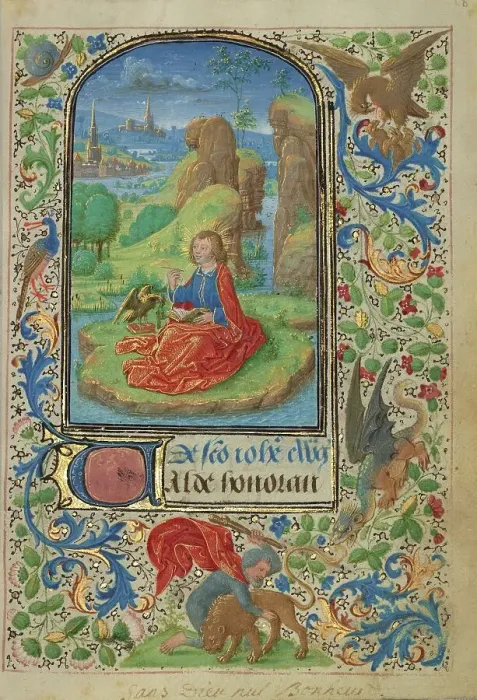 De sco iohe ewg
VAlde honoran
Sans Dieu nul Bonheur